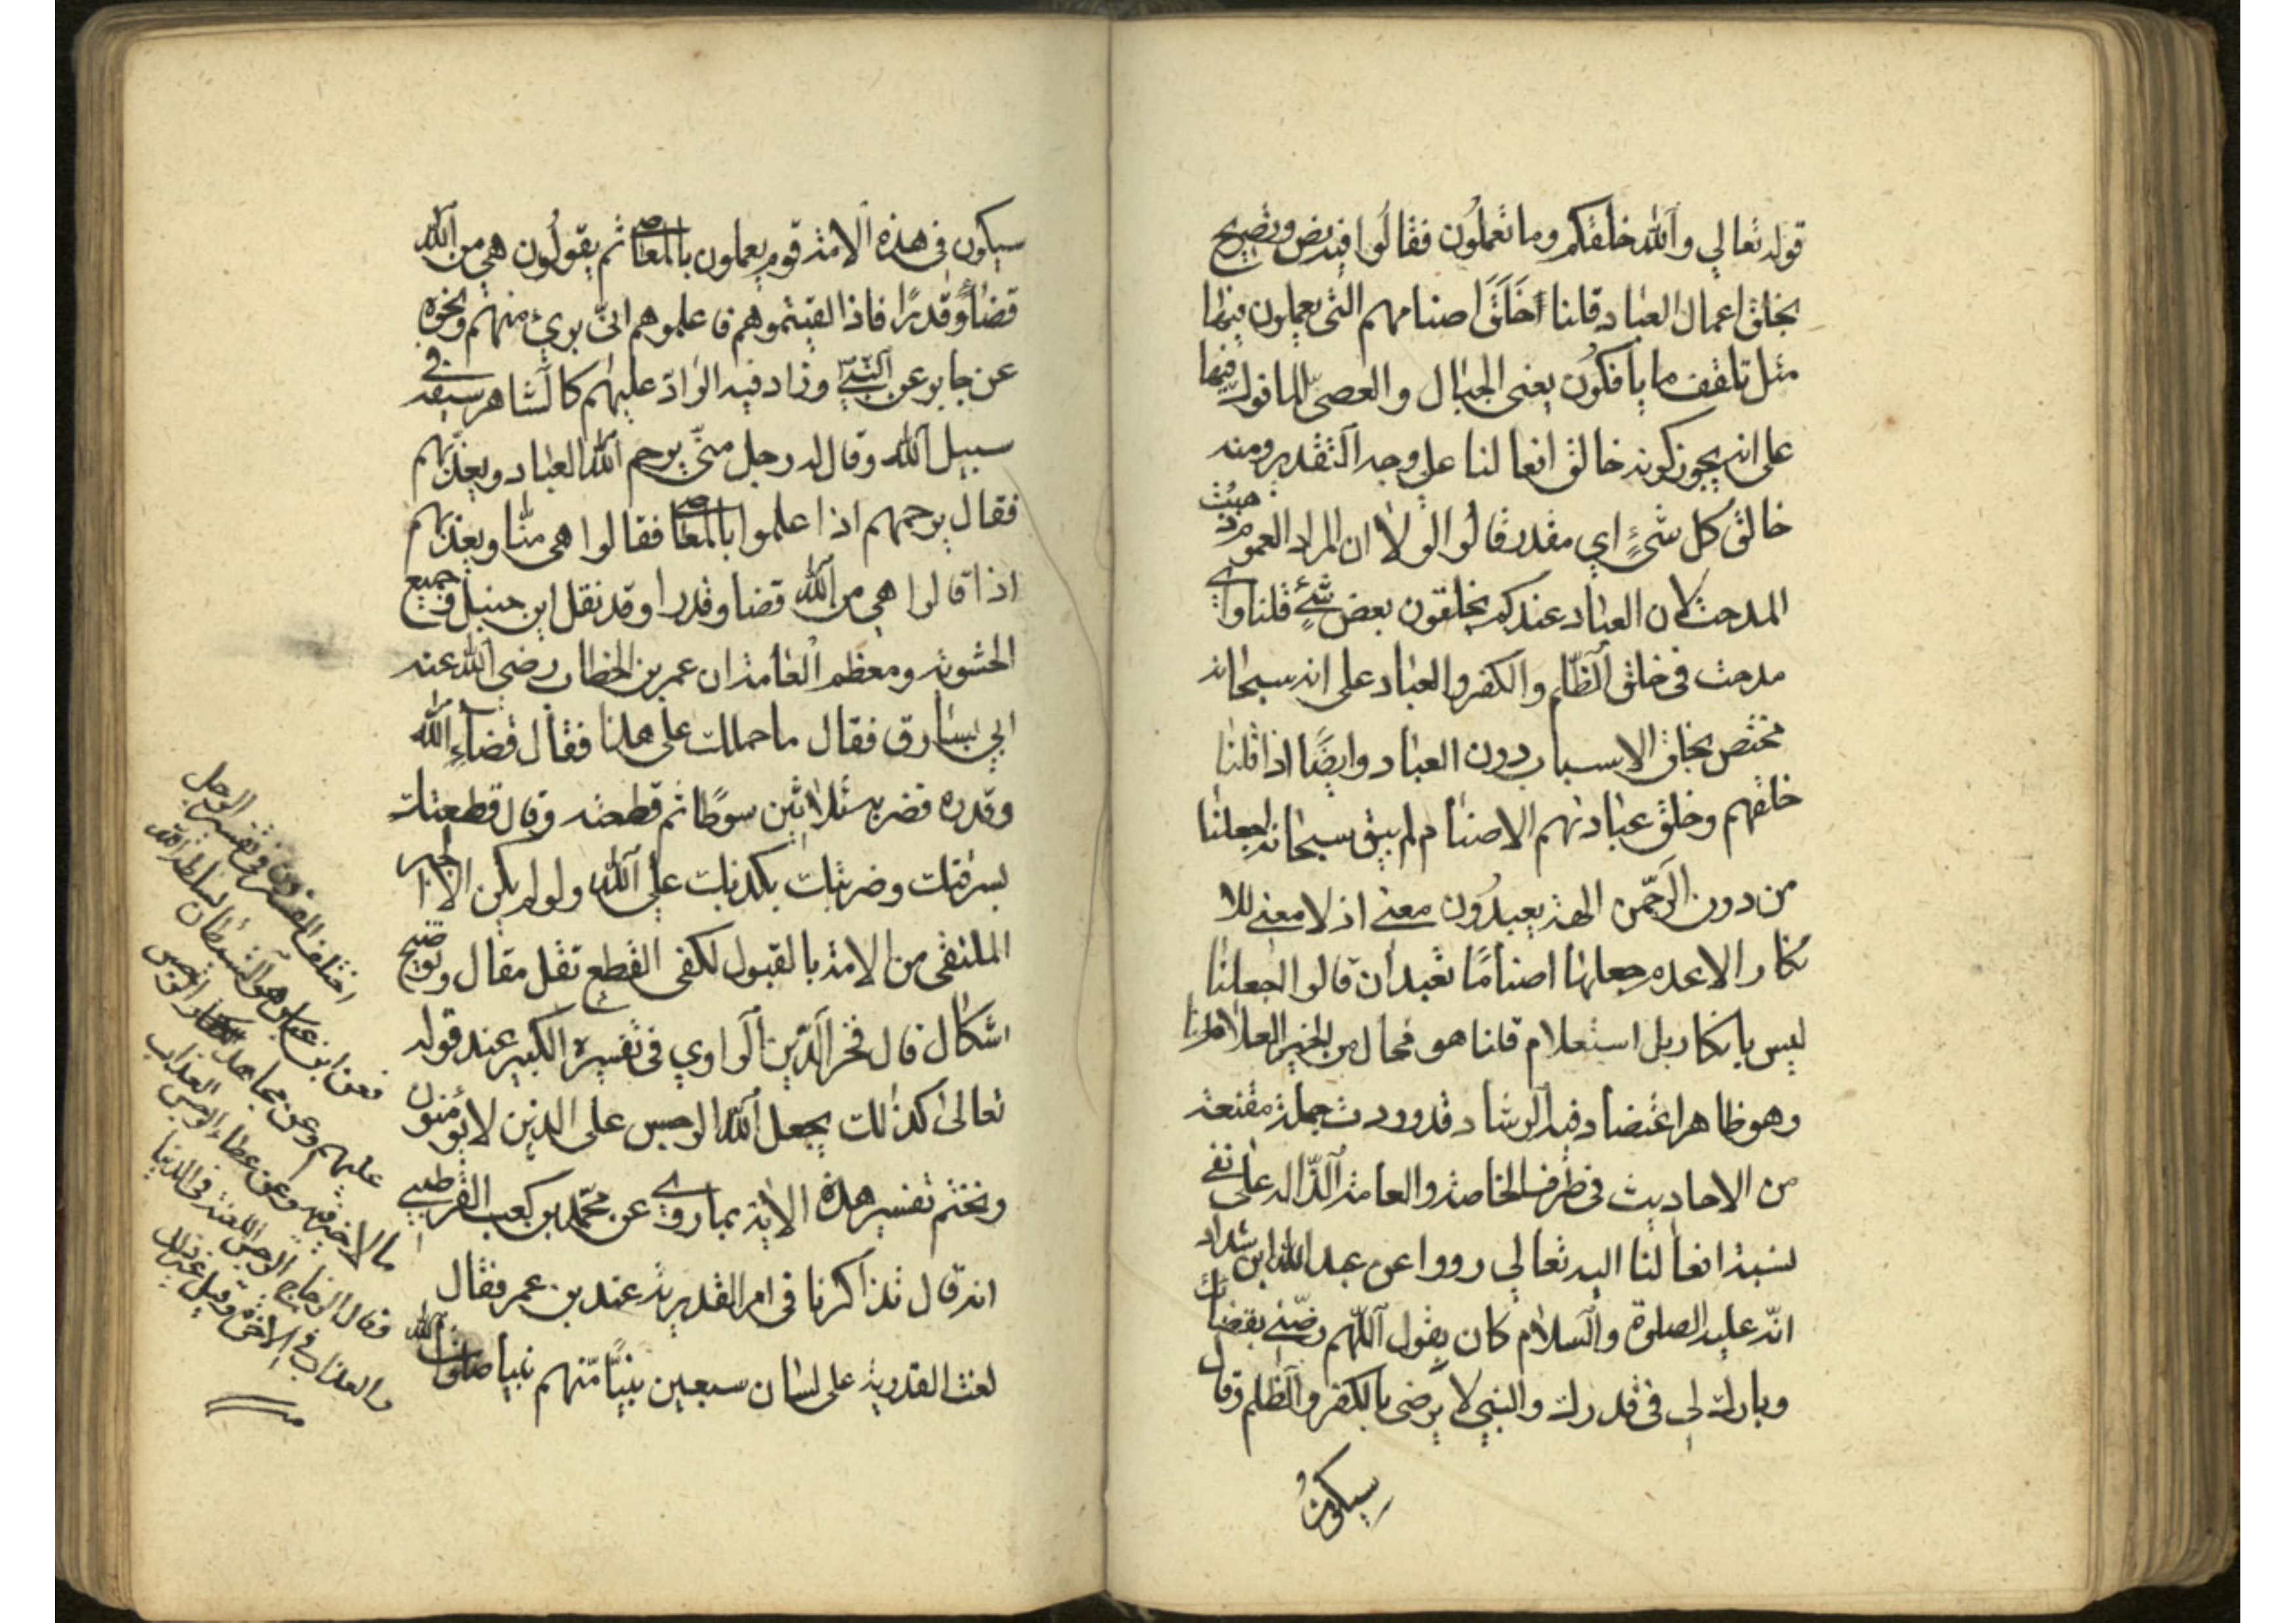 قوله تعالي والله خلقكم وما تعملون فقالوا فيه نص وتصريح
بخلق اعمال العباد قلنا خَلَقَ اصنامهم التى يعملون فيها
مثل تلقف ما يأفكون يعنى الحبال والعصىّ المأفوك فيها
على انه يجوز كونه خالق افعالنا على وجه التقدير ومنه
خالق كل شئٍ اي مقدر قالوا لولا ان المراد العموم حيث
المدحة لان العباد عندكم يخلقون بعض شئٍ قلنا واي
مدحة في خلق الظلم والكفر والعباد على انه سبحانه
مختص بخلق الاسباب دون العباد وايضًا اذا قلنا
خلقهم وخلق عبادتهم الاصنام لم يبق سبحانه اجعلنا
من دون الرحمن الهة يعبدون معنى اذ لا معنى للا
نكار الا عدم جعلها اصنامًا تعبد ان قالوا اجعلنا
ليس بانكار بل استعلام قلنا هو محال من الخبير العلام
وهو ظاهر اعتضاد فيه الرشاد قد وردت جملة مقنعة
من الاحاديث في طرف الخاصة والعامة الدّالة على نفى
نسبة افعالنا اليه تعالي رووا عن عبد الله ابن شداد
انّه عليه الصلوة والسلام كان يقول اللهم رضّنى بقضائك
وبارك لى في قدرك والنبي لا يرضى بالكفر والظلم وقال
سيكون
سيكون في هذه الامة قوم يعملون بالمعاصى ثم يقولون هى من الله
قضاءً وقدرًا فاذا لقيتموهم فاعلموهم انىّ برئ منهم ونحوه
عن جابر عن النبي وزاد فيه الرادّ عليهم كالشاهر سيفه في
سبيل الله وقال له رجل متى يرحم الله العباد ويعذّبهم
فقال يرحمهم اذا عملوا بالمعاصى فقالوا هى منّا ويعذبهم
اذا قالوا هى من الله قضا وقدرا وقد نقل ابن حنبل وجميع
الحشوية ومعظم العامة ان عمر بن الخطاب رضي الله عنه
اتي بسارق فقال ما حملك على هذا فقال قضاء الله
وقدره فضربه ثلاثين سوطا ثم قطعه وقال قطعتك
بسرقتك وضربتك بكذبك على الله ولو لم يكن الا الخبر
الملتقى من الامة بالقبول لكفى القطع نقل مقال وتوضيح
اشكال قال فخر الدّين الراوي في تفسيره الكبير عند قوله
تعالى كذلك يجعل الله الرجس على الذين لا يؤمنون
ونختم تفسير هذه الاية بما روي عن محمّد بن كعب القرطبي
انه قال تذاكرنا في امر القدرية عند بن عمر فقال
لعنت القدرية على لسان سبعين نبيًّا منهم نبينا صلوات الله
اختلف المفسرون في تفسير الرجس
فعن ابن عباس هو الشيطان يسلطه الله
عليهم وعن مجاهد الرجس
ما لا خير فيه وعن عطاء الرجس العذاب
وقال الزجاج الرجس اللعنة في الدنيا
والعذاب في الاخرة وقيل غير ذلك